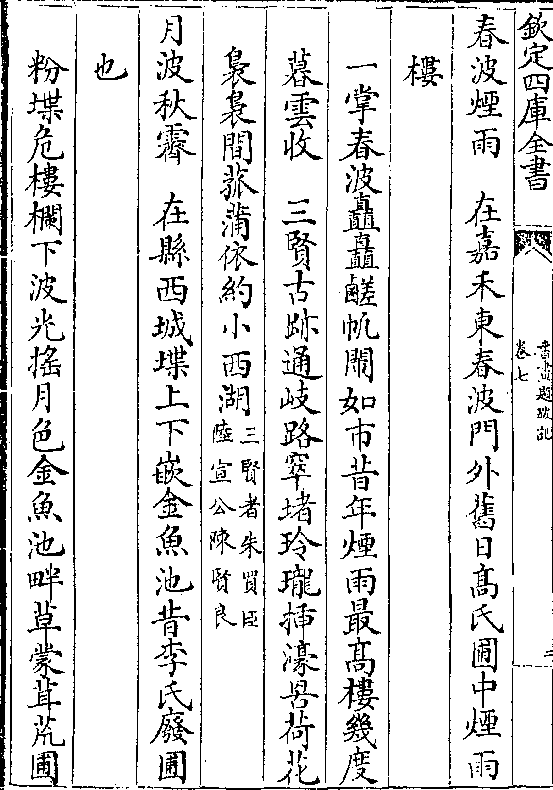 欽定四庫全書
卷七
春波煙雨　在嘉禾東春波門外舊日髙氏圃中煙雨
樓
一掌春波矗矗鹺帆閙如市昔年煙雨最髙樓幾度
暮雲收　三賢古跡通岐路窣堵玲瓏揷濠罟荷花
裊裊間菰蒲依約小西湖三賢者朱買臣陸宣公陳賢良
月波秋霽　在縣西城堞上下嵌金魚池昔李氏廢圃
也
粉堞危樓欄下波光揺月色金魚池畔草蒙茸荒圃